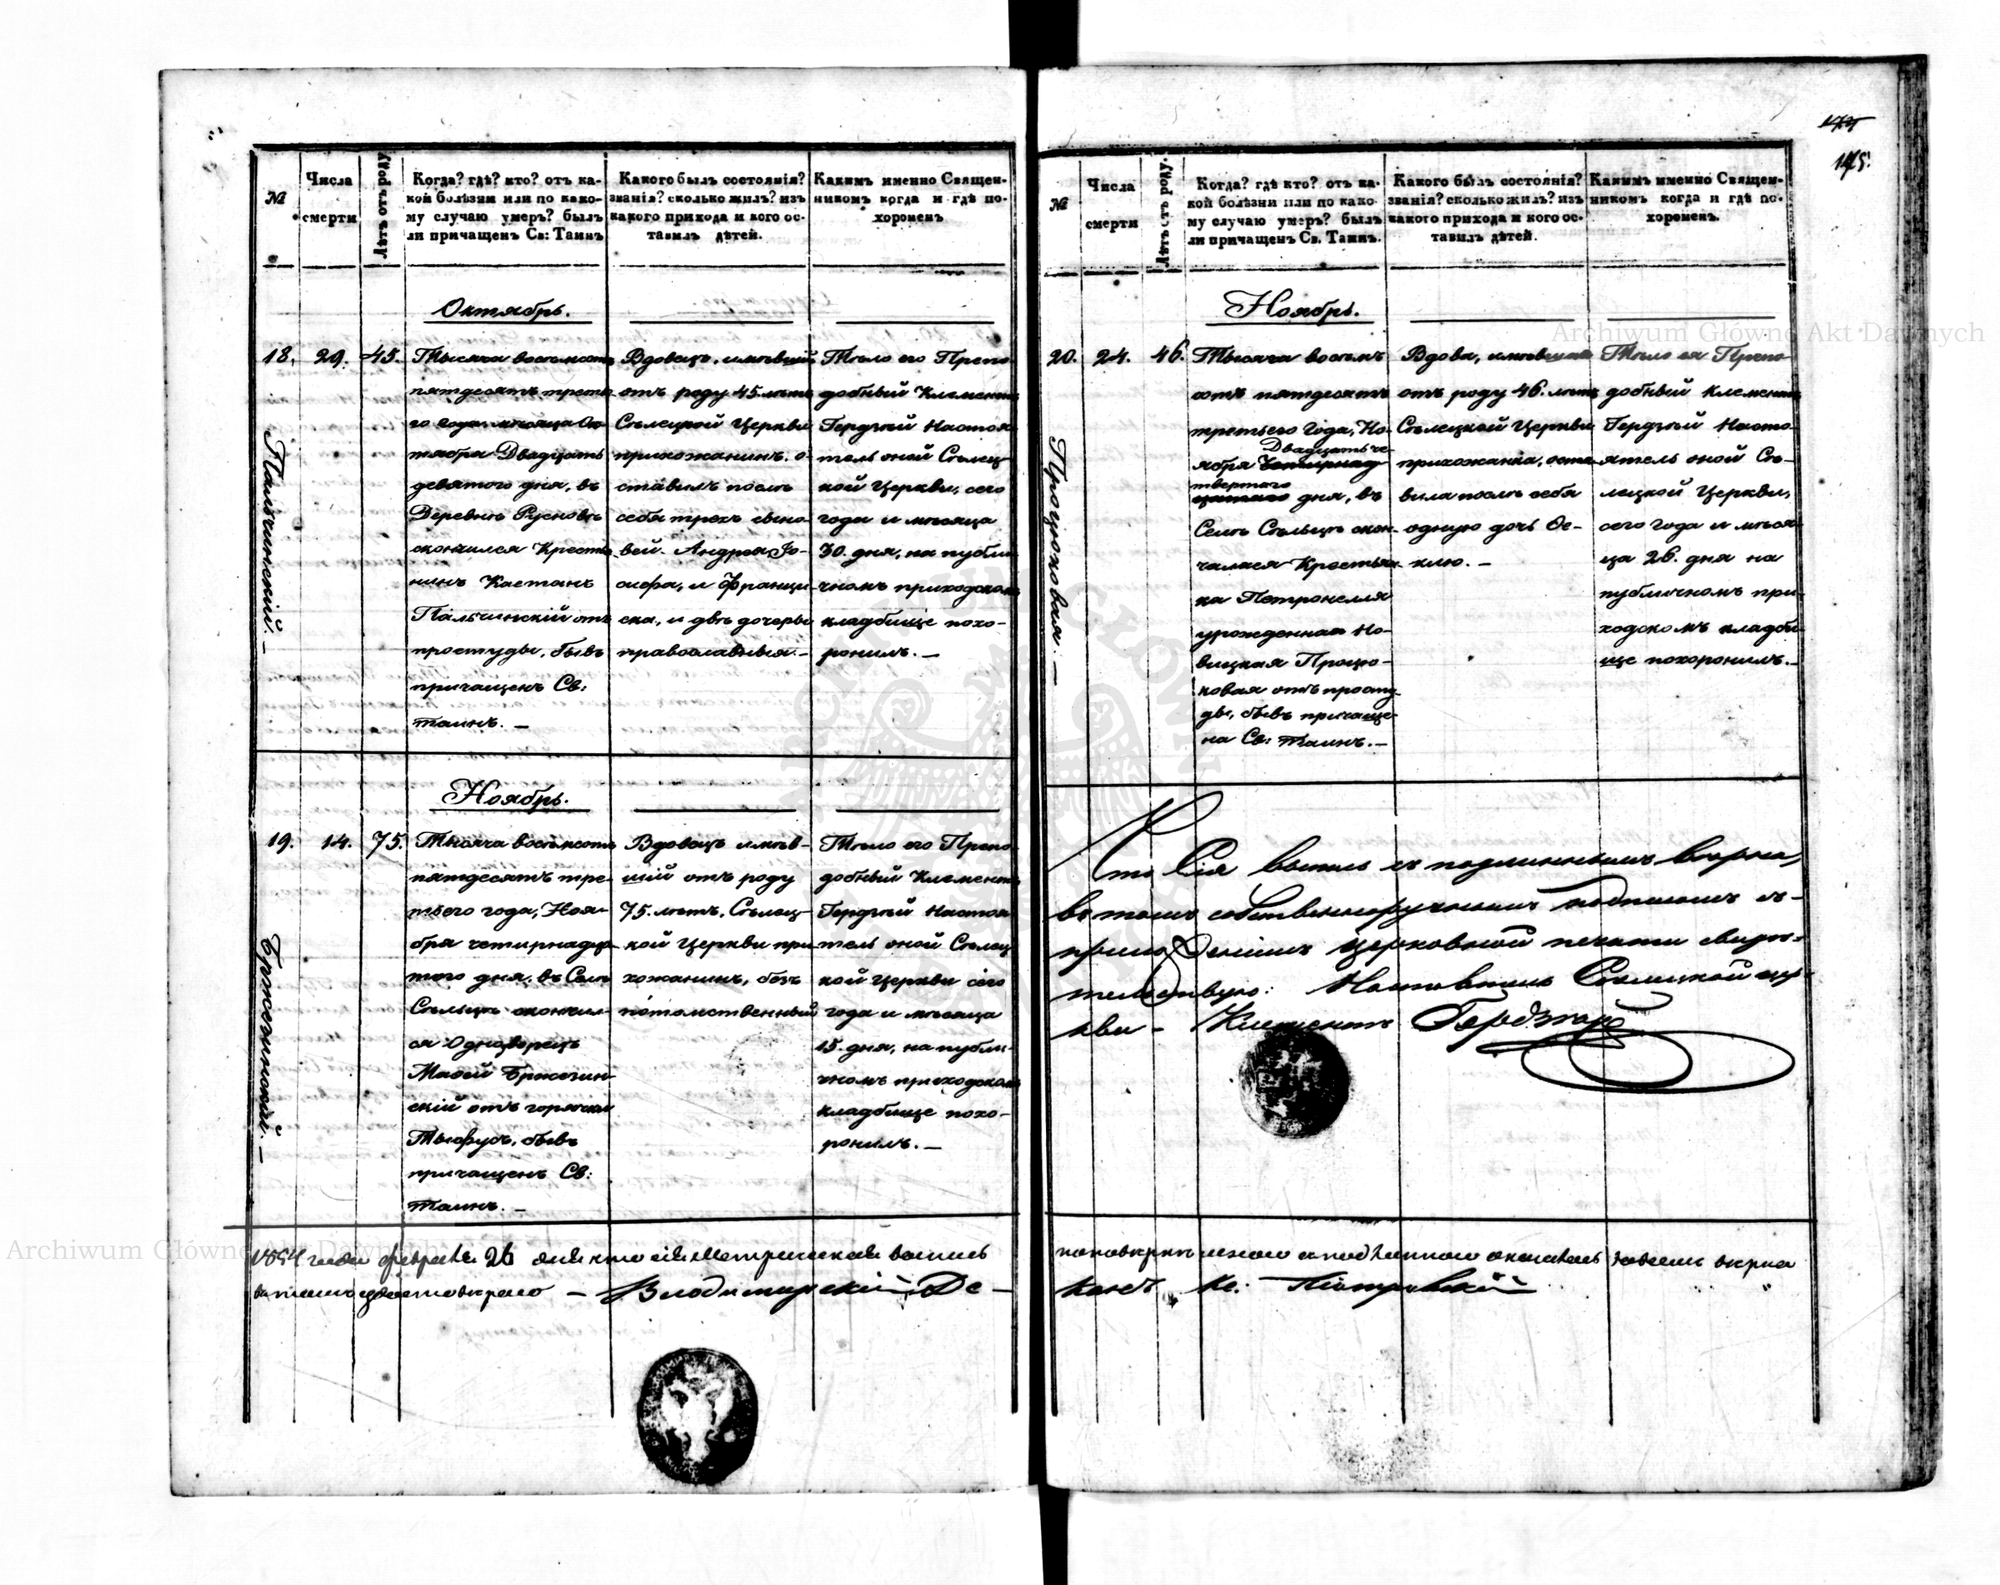 175.
№
Числа смерти
Лѣтъ отъ роду
Когда? гдѣ? кто? отъ ка-
кой болѣзни или по како-
му случаю умеръ? былъ
ли причащенъ Св: Таинъ
Какого былъ состоянія?
званія? сколько жилъ? изъ
какого прихода и кого ос-
тавилъ дѣтей.
Какимъ именно Священ-
никомъ когда и гдѣ по-
хороненъ
Октябрь.
Пальчинскій. —
18.
29.
45.
Тысяча восемьсотъ
пятдесятъ треть-
го года мѣсяца Ок-
тября Двадцать
девятого дня, въ
Деревнѣ Русновъ
скончился Крестья-
нинъ Каетанъ
Пальчинскій отъ
простуды, бывъ
причащенъ Св:
таинъ. —
Вдовецъ, имѣвшій
отъ роду 45. лѣтъ
Сѣлецкой Церкви
прихожанинъ, о-
ставилъ послѣ
себя трехъ сыно-
вей. Андрея, Іо-
сифа, и Францис-
ска, и двѣ дочеры
православныя. —
Тѣло его Препо-
добный Климентій
Гердзгой Настоя-
тель оной Сѣлец-
кой Церкви, сего
года и мѣсяца
30. дня, на публи-
чномъ приходскомъ
кладбище похо-
ронилъ. —
Ноябрь.
Бржезинскій. —
19.
14.
75.
Тысяча восемьсотъ
пятдесятъ тре-
тьего года, Ноя-
бря четирнадца-
того дня, въ Селѣ
Сѣльцѣ скончил-
ся Однодворецъ
Матей Бржезин-
скій отъ горячки
Тыфусъ, бывъ
причащенъ Св:
Таинъ. —
Вдовецъ имѣв-
шій отъ роду
75. лѣтъ, Сѣлец-
кой Церкви при-
хожанинъ, безъ
потомственный
Тѣло его Препо-
добный Климентій
Гердзгой Настоя-
тель оной Сѣлец-
кой Церкви сего
года и мѣсяца
15. дня, на публи-
чномъ приходскомъ
кладбище похо-
ронилъ. —
№
Числа смерти
Лѣтъ отъ роду.
Когда? гдѣ кто? отъ ка-
кой болѣзни или по како-
му случаю умеръ? былъ
ли причащенъ Св. Таинъ.
Какого былъ состоянія?
званія? сколько жилъ? изъ
какого прихода и кого ос-
тавилъ дѣтей.
Какимъ именно Священ-
никомъ когда и гдѣ по-
хороненъ.
Ноябрь.
Процюковая. —
20.
24.
46.
Тысяча восемь
сотъ пятдесятъ
третьего года, Но-
Двадцать че-
ября Четирнад-
твертого
цатаго дня, въ
Селѣ Сѣльцѣ скон-
чалася Крестьян-
ка Петронелля
урожденная Но-
вицкая Процю-
ковая отъ просту-
ды, бывъ причаще-
на Св: таинъ. —
Вдова, имѣвшая
отъ роду 46. лѣтъ
Сѣлецкой Церкви
прихожанка, оста-
вила послѣ себя
одную дочь Ѳе-
клю. —
Тѣло ея Препо-
добный Климентій
Гердзгой Насто-
ятель оной Сѣ-
лецкой Церкви,
сего года и мѣся-
ца 26. дня на
публичномъ при-
ходскомъ кладби-
ще похоронилъ. —
Что Сія выпись съ подлинникомъ вѣрна,
въ томъ собственноручнымъ подписомъ съ
приложеніемъ Церковной печати свидѣ-
тельствую: Настоятель Сѣлецкой цер-
кви — Климентій Гердзгой
1854 года февраля 26 дня что сія Метрическая выпись
по повѣркѣ мною съ подлинною оказалась во всемъ вѣрна
въ томъ удостовѣряю — Володимирскій Де-
канъ Кс. Піотровскій
Archiwum Główne Akt Dawnych
Archiwum Główne Akt Dawnych